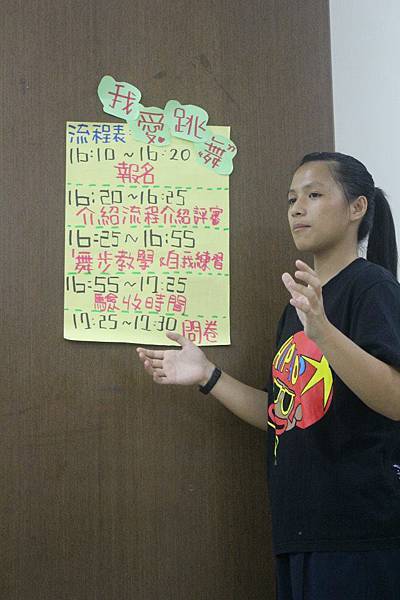 我愛跳舞
流程表
16:10～16:20
報名
16:20～16:25
介紹流程介紹評審
16:25～16:55
舞步教學&自我練習
16:55～17:25
驗收時間
17:25～17:30 問卷